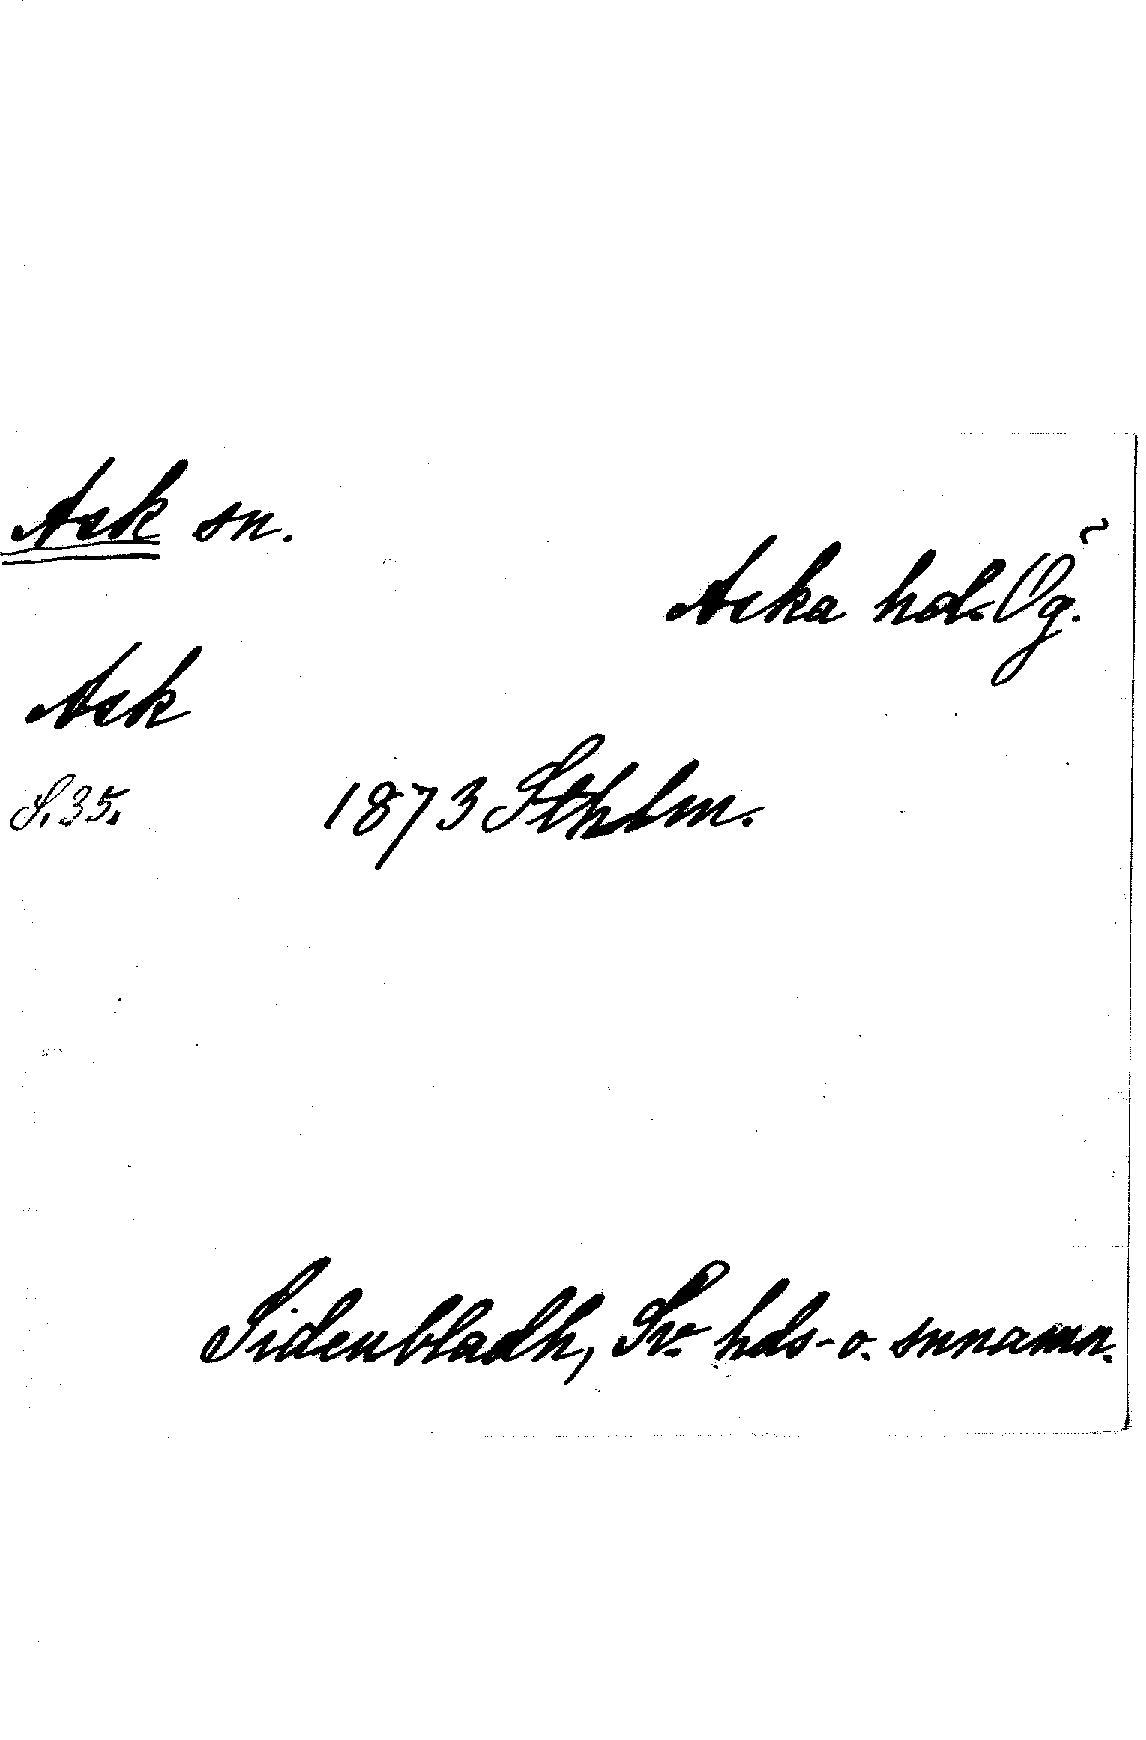 Ask sn.
Aska hd. Ög.
Ask
S. 35.
1873 Sthlm.
Sidenbladh, Sv. hds- o. snnamn.